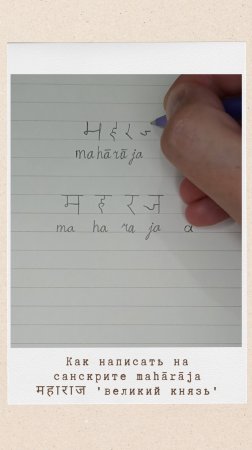 म ह र ज
mahārāja
म ह र ज
ma ha ra ja a
Как написать на
санскрите mahārāja
महाराज 'великий князь'